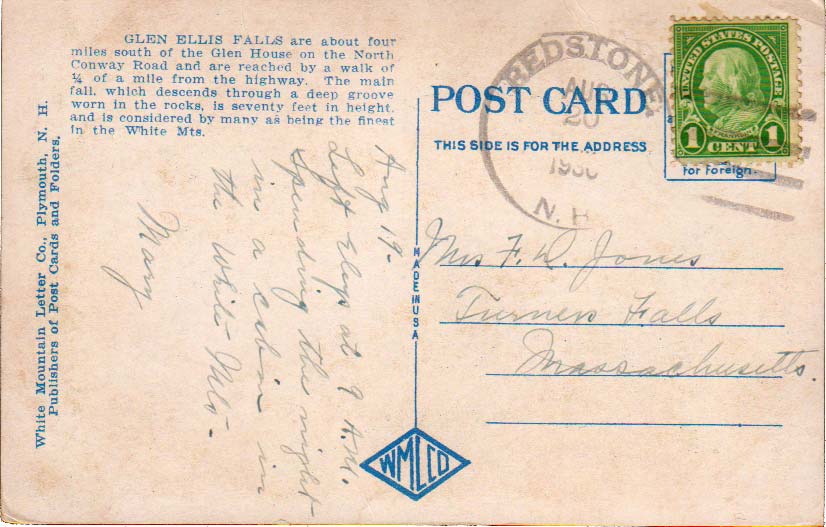 GLEN ELLIS FALLS are about four
miles south of the Glen House on the North
Conway Road and are reached by a walk of
¼ of a mile from the highway. The main
fall, which descends through a deep groove
worn in the rocks, is seventy feet in height,
and is considered by many as being the finest
in the White Mts.
White Mountain Letter Co., Plymouth, N. H.
Publishers of Post Cards and Folders.
Aug 19-
Left Elys at 9 A.M.
Spending the night
in a cabin in
the White Mts-
Mary
POST CARD
THIS SIDE IS FOR THE ADDRESS
MADE IN USA
WMLCO
REDSTONE
AUG
20
N. H.
UNITED STATES POSTAGE
FRANKLIN
1 CENT 1
for Foreign
Mrs F. D. Jones
Turners Falls
Massachusetts.